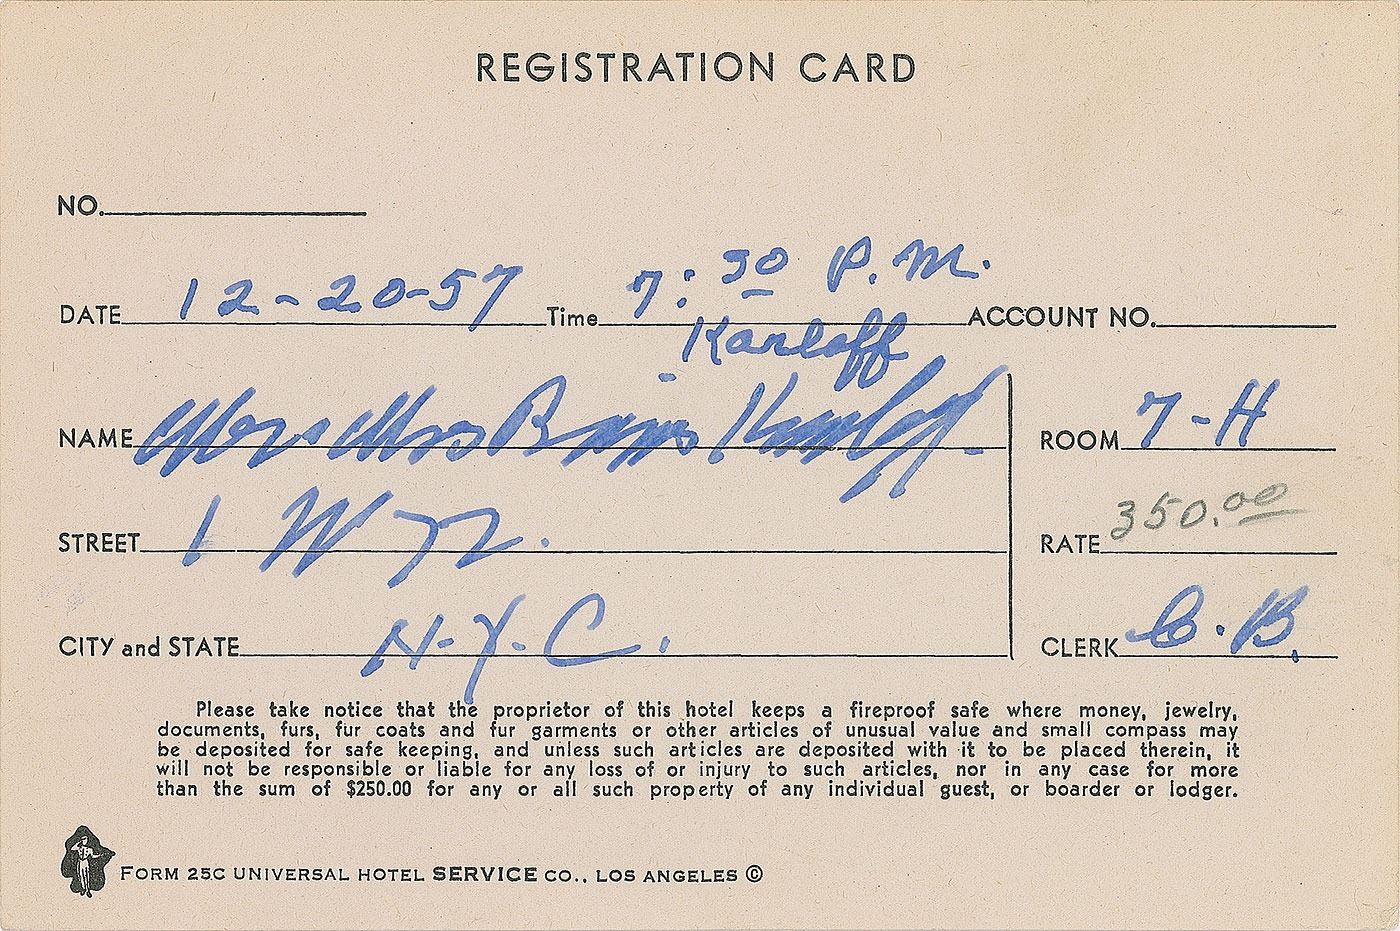 REGISTRATION CARD
NO.
DATE 12-20-57 Time 7:30 P.M. ACCOUNT NO.
Karloff
NAME Mr & Mrs Boris Karloff. ROOM 7-H
STREET 1 W 72. RATE 350.00
CITY and STATE N.Y.C. CLERK C.B.
Please take notice that the proprietor of this hotel keeps a fireproof safe where money, jewelry,
documents, furs, fur coats and fur garments or other articles of unusual value and small compass may
be deposited for safe keeping, and unless such articles are deposited with it to be placed therein, it
will not be responsible or liable for any loss of or injury to such articles, nor in any case for more
than the sum of $250.00 for any or all such property of any individual guest, or boarder or lodger.
FORM 25C UNIVERSAL HOTEL SERVICE CO., LOS ANGELES ©